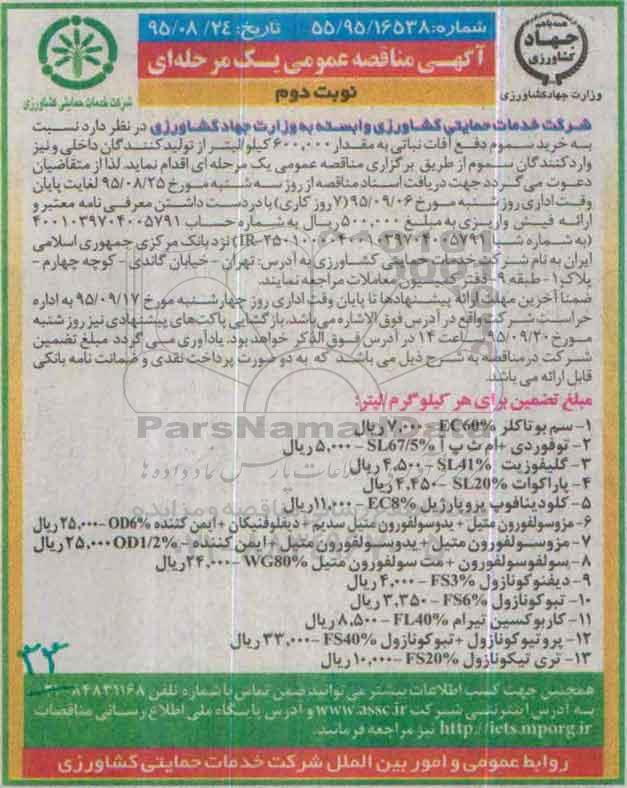 شماره: ۵۵/۹۵/۱۶۵۳۸ تاریخ: ۹۵/۰۸/۲۴
همه با هم جهاد کشاورزی
وزارت جهاد کشاورزی
شرکت خدمات حمایتی کشاورزی
آگهی مناقصه عمومی یک مرحله‌ای
نوبت دوم
شرکت خدمات حمایتی کشاورزی وابسته به وزارت جهاد کشاورزی در نظر دارد نسبت
به خرید سموم دفع آفات نباتی به مقدار ۶۰۰,۰۰۰ کیلو لیتر از تولید کنندگان داخلی و نیز
وارد کنندگان سموم از طریق برگزاری مناقصه عمومی یک مرحله ای اقدام نماید. لذا از متقاضیان
دعوت می گردد جهت دریافت اسناد مناقصه از روز سه شنبه مورخ ۹۵/۰۸/۲۵ لغایت پایان
وقت اداری روز شنبه مورخ ۹۵/۰۹/۰۶ (۷ روز کاری) با در دست داشتن معرفی نامه معتبر و
ارائه فیش واریزی به مبلغ ۵۰۰,۰۰۰ ریال به شماره حساب ۴۰۰۱۰۳۹۷۰۴۰۰۵۷۹۱
(به شماره شبا) نزد بانک مرکزی جمهوری اسلامی
ایران به نام شرکت خدمات حمایتی کشاورزی به آدرس: تهران - خیابان گاندی - کوچه چهارم -
پلاک ۱ - طبقه ۹ - دفتر کمیسیون معاملات مراجعه نمایند.
ضمنا آخرین مهلت ارائه پیشنهادها تا پایان وقت اداری روز چهارشنبه مورخ ۹۵/۰۹/۱۷ به اداره
حراست شرکت واقع در آدرس فوق الاشاره می باشد. بازگشایی پاکت‌های پیشنهادی نیز روز شنبه
مورخ ۹۵/۰۹/۲۰ ساعت ۱۴ در آدرس فوق الذکر خواهد بود. یادآوری می گردد مبلغ تضمین
شرکت در مناقصه به شرح ذیل می باشد که به دو صورت پرداخت نقدی و ضمانت نامه بانکی
قابل ارائه می باشد.
مبلغ تضمین برای هر کیلوگرم/لیتر:
۱- سم بوتاکلر EC60% - ۷,۰۰۰ ریال
۲- توفوردی + ام ث پ آ SL67/5% - ۵,۰۰۰ ریال
۳- گلیفوزیت SL41% - ۴,۵۰۰ ریال
۴- پاراکوات SL20% - ۴,۴۵۰ ریال
۵- کلودینافوپ پروپارژیل EC8% - ۱۱,۰۰۰ ریال
۶- مزوسولفورون متیل + یدوسولفورون متیل سدیم + دیفلوفنیکان + ایمن کننده OD6% - ۲۵,۰۰۰ ریال
۷- مزوسولفورون متیل + یدوسولفورون متیل + ایمن کننده - OD1/2% ۲۵,۰۰۰ ریال
۸- سولفوسولفورون + مت سولفورون متیل WG80% - ۲۴,۰۰۰ ریال
۹- دیفنوکونازول FS3% - ۴,۰۰۰ ریال
۱۰- تبوکونازول FS6% - ۳,۳۵۰ ریال
۱۱- کاربوکسین تیرام FL40% - ۸,۵۰۰ ریال
۱۲- پروتیوکونازول + تبوکونازول FS40% - ۳۳,۰۰۰ ریال
۱۳- تری تیکونازول FS20% - ۱۰,۰۰۰ ریال
همچنین جهت کسب اطلاعات بیشتر می توانید ضمن تماس با شماره تلفن ۸۴۸۳۱۱۶۸
به آدرس اینترنتی شرکت www.assc.ir و آدرس پایگاه ملی اطلاع رسانی مناقصات
http://iets.mporg.ir نیز مراجعه فرمائید.
روابط عمومی و امور بین الملل شرکت خدمات حمایتی کشاورزی
ParsNamadData